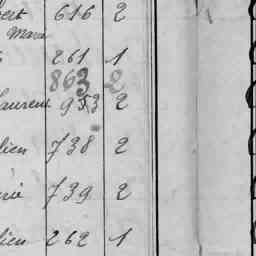 bert 616 2
Marie
261 1
863 2
Laurent 953 2
lien 738 2
rie 739 2
lien 262 1